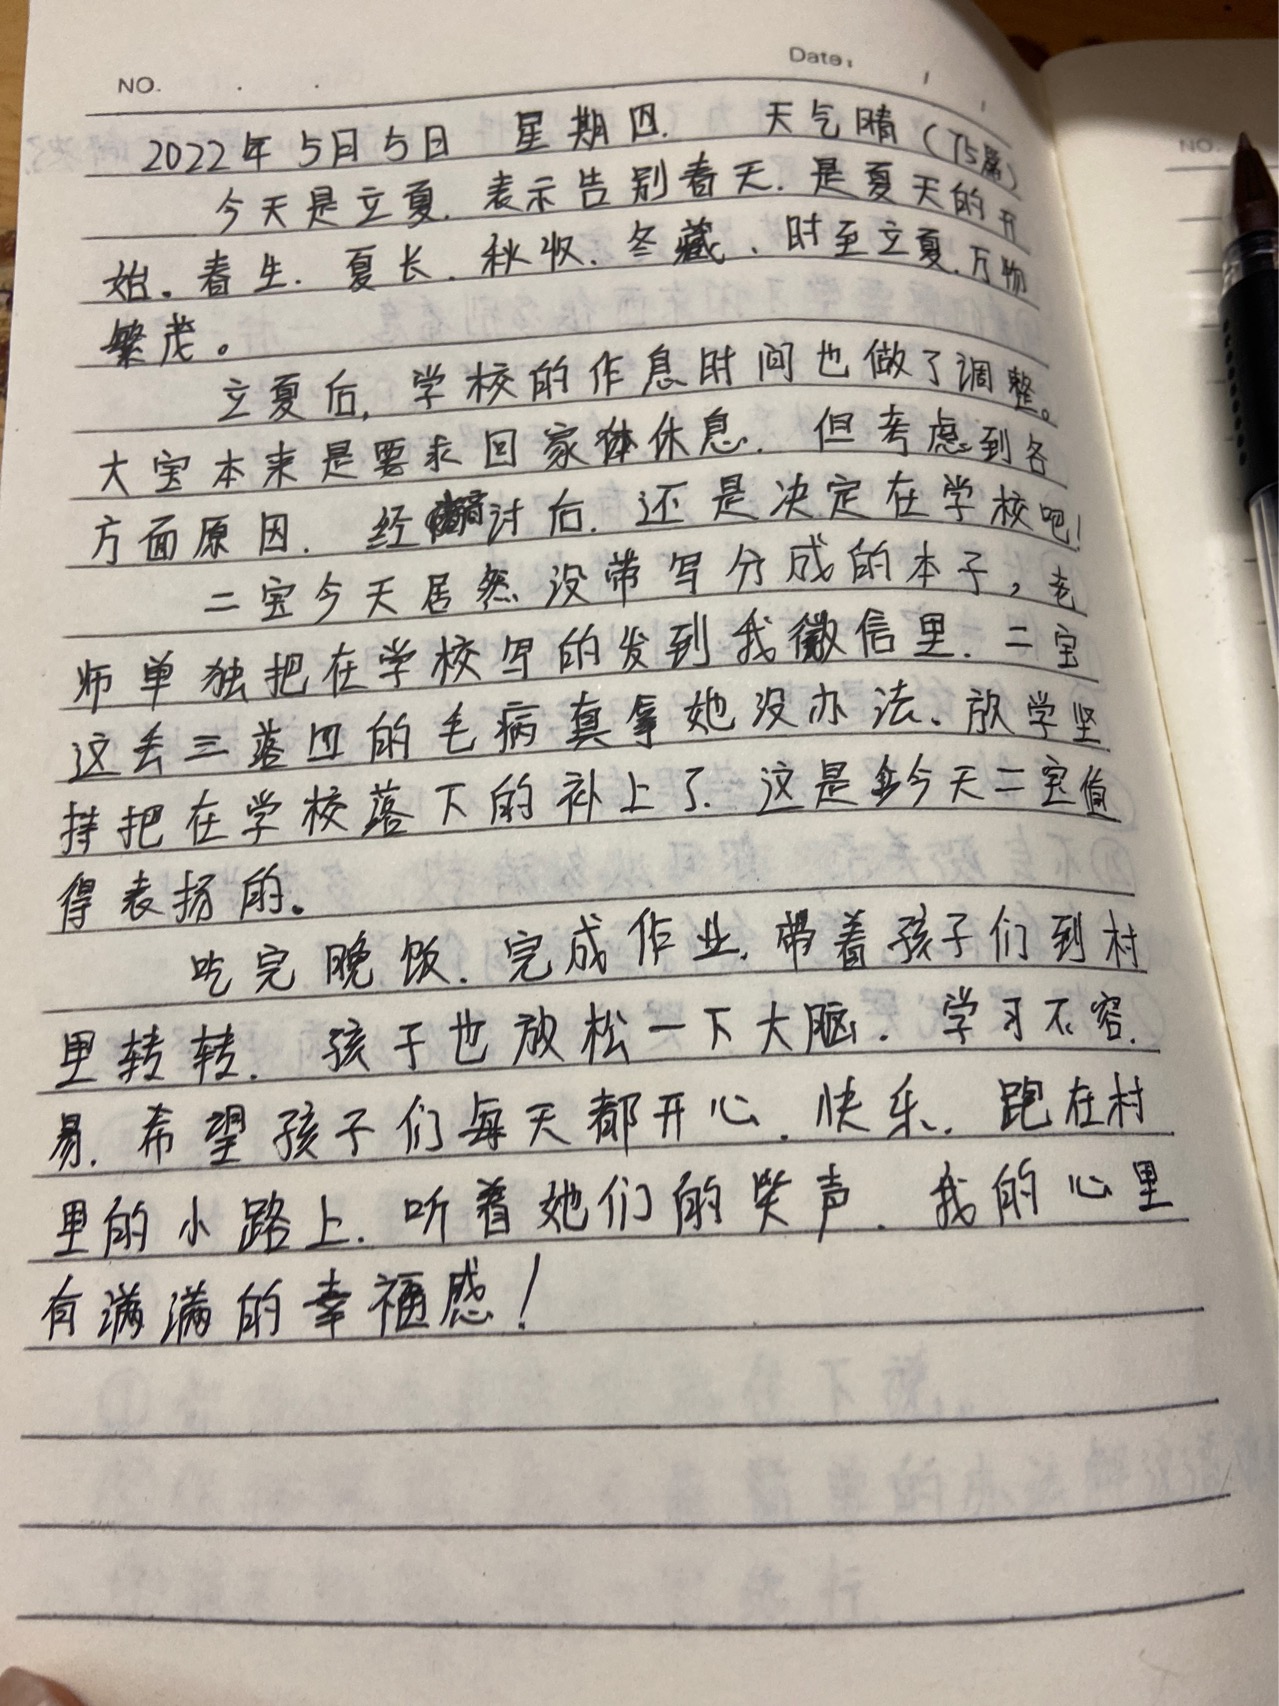 NO.
Date:
2022年5月5日 星期四. 天气晴（
今天是立夏.表示告别春天.是夏天的开
始。春生.夏长.秋收.冬藏、时至立夏.万物
繁茂。
立夏后,学校的作息时间也做了调整。
大宝本来是要求回家休息.但考虑到各
方面原因.经 讨后.还是决定在学校吧!
二宝今天居然没带写分成的本子，老
师单独把在学校写的发到我微信里.二宝
这丢三落四的毛病真拿她没办法、放学坚
持把在学校落下的补上了.这是今天二宝值
得表扬的。
吃完晚饭.完成作业.带着孩子们到村
里转转.孩子也放松一下大脑.学习不容.
易.希望孩子们每天都开心.快乐.跑在村
里的小路上.听着她们的笑声.我的心里
有满满的幸福感!
NO.